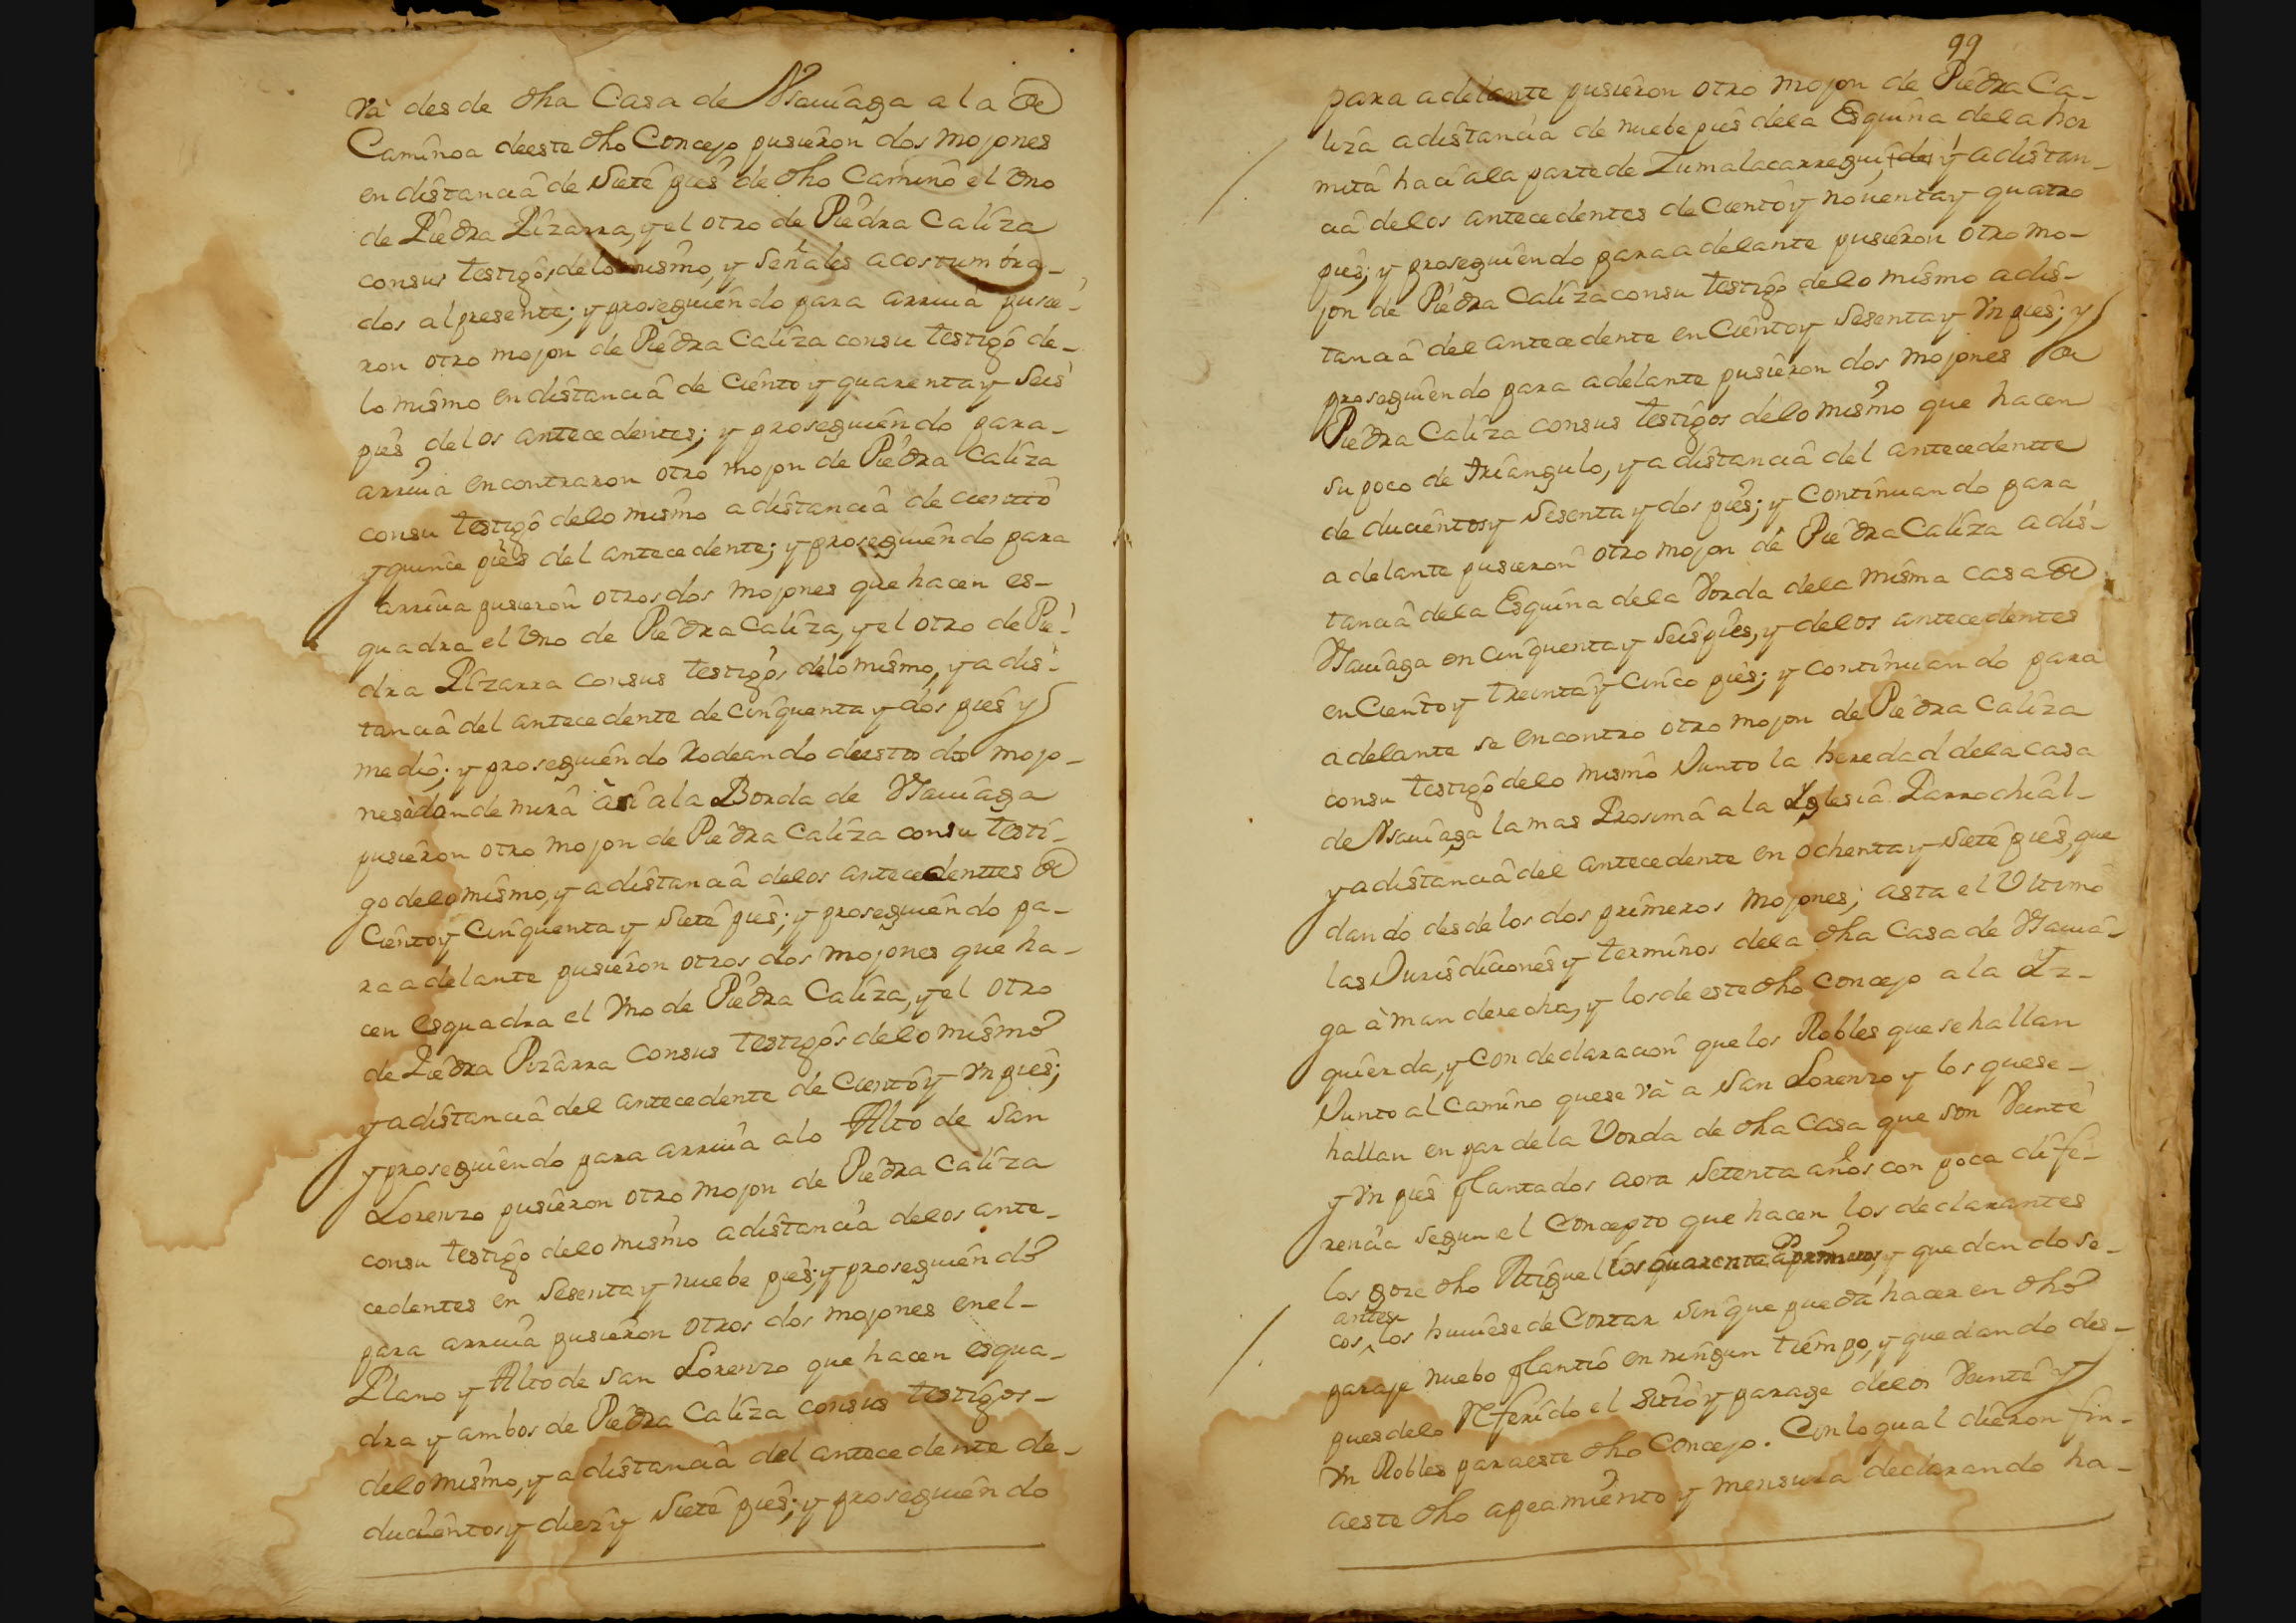 và desde dha Casa de Ysauiaga a la de
Caminoa deeste dho Concejo pusieron dos mojones
en distancia de Siete pies de dho Camino el Vno
de Piedra Pizarra, y el otro de Piedra Caliza
consus testigos delo mismo, y señales acostumbra-
dos alpresente; y prosequiendo para arriua pusie-
ron otro mojon de Piedra Caliza consu testigo de-
lo mismo en distancia de ciento y quarenta y seis
pies delos antecedentes; y prosequiendo para-
arriua encontraron otro mojon de Piedra Caliza
consu testigo delo mismo a distancia de ciento
y quince pies del antecedente; y prosequiendo para
arriua pusieron otros dos mojones que hacen es-
quadra el Vno de Piedra Caliza, y el otro de Pie-
dra Pizarra consus testigos delo mismo, y a dis-
tancia del antecedente de cinquenta y dos pies y
medio; y prosequiendo Rodeando deesto dos mojo-
nes adonde mira àcia la Borda de Ysauiaga
pusieron otro mojon de Piedra Caliza consu testi-
go delo mismo, y a distancia delos antecedenttes de
Ciento y Cinquenta y Siete pies; y prosequiendo pa-
ra adelante pusieron otros dos mojones que ha-
cen esquadra el Vno de Piedra Caliza, y el otro
de Piedra Pizarra Consus testigos delo mismo
y a distancia del antecedente de Ciento y Vn pies;
y prosequiendo para arriua alo Alto de San
Lorenzo pusieron otro mojon de Piedra Caliza
consu testigo delo mismo a distancia delos ante-
cedentes en Sesenta y nuebe pies; y prosequiendo
para arriua pusieron otros dos mojones en el-
Plano y Alto de San Lorenzo que hacen esqua-
dra y ambos de Piedra Caliza consus testigos-
delo mismo, y a distancia del antecedente de-
ducientos y diez y Siete pies; y prosequiendo
99
para adelante pusieron otro mojon de Piedra Ca-
liza a distancia de nuebe pies dela Esquina dela her
mita hacia la parte de Zumalacarregui, y a distan-
cia delos antecedentes de Ciento y nouenta y quatro
pies; y prosequiendo para adelante pusieron otro mo-
jon de Piedra Caliza consu testigo delo mismo a dis-
tancia del antecedente en Ciento y Sesenta y Vn pies; y
prosequiendo para adelante pusieron dos mojones de
Piedra Caliza consus testigos delo mismo que hacen
su poco de triangulo, y a distancia del antecedentte
de ducientos y Sesenta y dos pies; y continuando para
adelante pusieron otro mojon de Piedra Caliza a dis-
tancia dela Esquina dela Vorda dela misma casa de
Ysauiaga en cinquenta y Seis pies, y delos antecedentes
en Ciento y treinta y Cinco pies; y continuando para
adelante se encontro otro mojon de Piedra Caliza
consu testigo delo mismo Junto la heredad dela casa
de Ysauiaga la mas Prosima a la Yglesia Parrochial-
y a distancia del antecedente en ochenta y Siete pies, que
dando desde los dos primeros mojones; asta el Vltimo
las Jurisdiciones y terminos dela dha Casa de Ysauia-
ga à man derecha, y los de este dho Concejo a la Iz-
quierda, y Con declaracion que los Robles que se hallan
Junto al camino que se và a San Lorenzo y los que se-
hallan en par de la Vorda de dha Casa que son Vainte
y Vn pies plantados aora Setenta años con poca dife-
rencia segun el Concepto que hacen los declarantes
los goze dho Miguel los quarenta primeros, y quedando se-
antes
cos, los huuiese de Cortar sin que pueda hacer en dho
paraje nuebo plantio en ningun tiempo, y quedando des-
pues delo Referido el Sitio y parage delos Vainte y
Vn Robles para este dho Concejo. Con lo qual dieron fin-
a este dho apeamiento y mensura declarando ha-